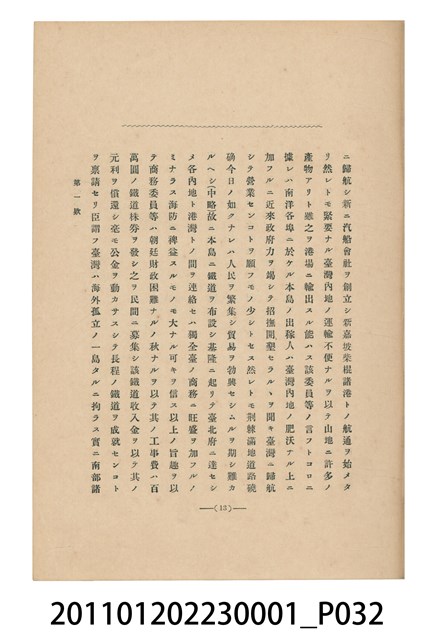 ニ歸航シ新ニ汽船會社ヲ創立シ新嘉坡柴棍諸港トノ航通ヲ始メタ
リ然レトモ緊要ナル臺灣內地ノ運輸不便ナルヲ以テ山地ニ許多ノ
產物アリト雖之ヲ港場ニ輸出スル能ハス該委員等ノ言フトコロニ
據レハ南洋各埠ニ於ケル本島ノ出稼人ハ臺灣內地ノ肥沃ナル上ニ
加フルニ近來政府力ヲ竭シテ招撫開墾セラルヽヲ聞キ臺灣ニ歸航
シテ營業センコトヲ願フモノ少シトセス然レトモ荆棘滿地道路磽
确今日ノ如クナレハ人民ヲ繁集シ貿易ヲ勃興セシムルヲ期シ難カ
ルヘシ(中略故ニ本島ニ鐵道ヲ布設シ基隆ニ起リテ臺北府ニ達セシ
メ各內地ト港灣トノ間ヲ連絡セハ獨全臺ノ商務ニ旺盛ヲ加フルノ
ミナラス海防ニ裨益スルモノモ大ナル可キヲ信ス以上ノ旨趣ヲ以
テ商務委員等ハ朝廷財政困難ナルノ秋ナルヲ以テ其ノ工事費ハ百
萬圓ノ鐵道株券ヲ發シ之ヲ民間ニ募集シ該鐵道收入金ヲ以テ其ノ
元利ヲ償還シ毫モ公金ヲ動カサスシテ長程ノ鐵道ヲ成就センコト
ヲ稟請セリ臣謂フ臺灣ハ海外孤立ノ一島タルニ拘ラス實ニ南部諸
第一欵
—(13)—
201101202230001_P032